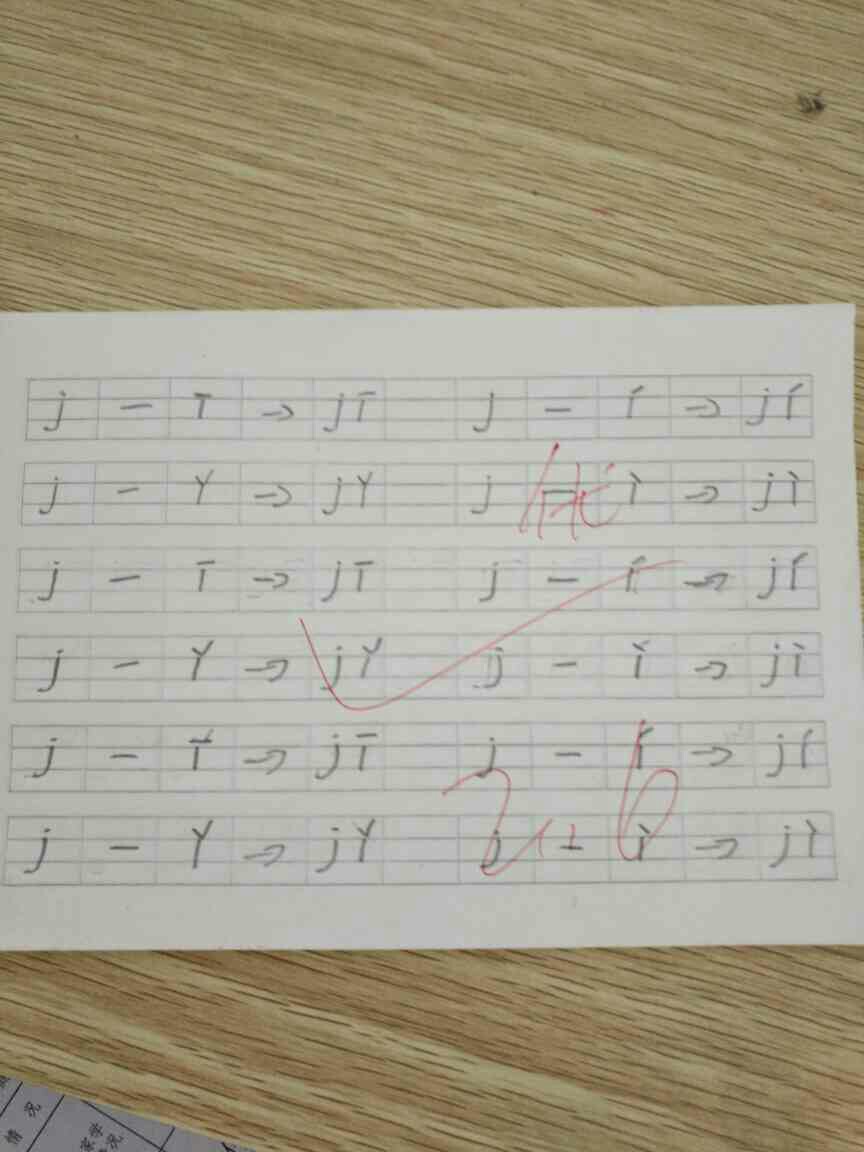 j - ī → jī j - í → jí
j - ǐ → jǐ j - ì → jì
j - ī → jī j - í → jí
j - ǐ → jǐ j - ì → jì
j - ī → jī j - í → jí
j - ǐ → jǐ j - ì → jì
情况
家学
情况